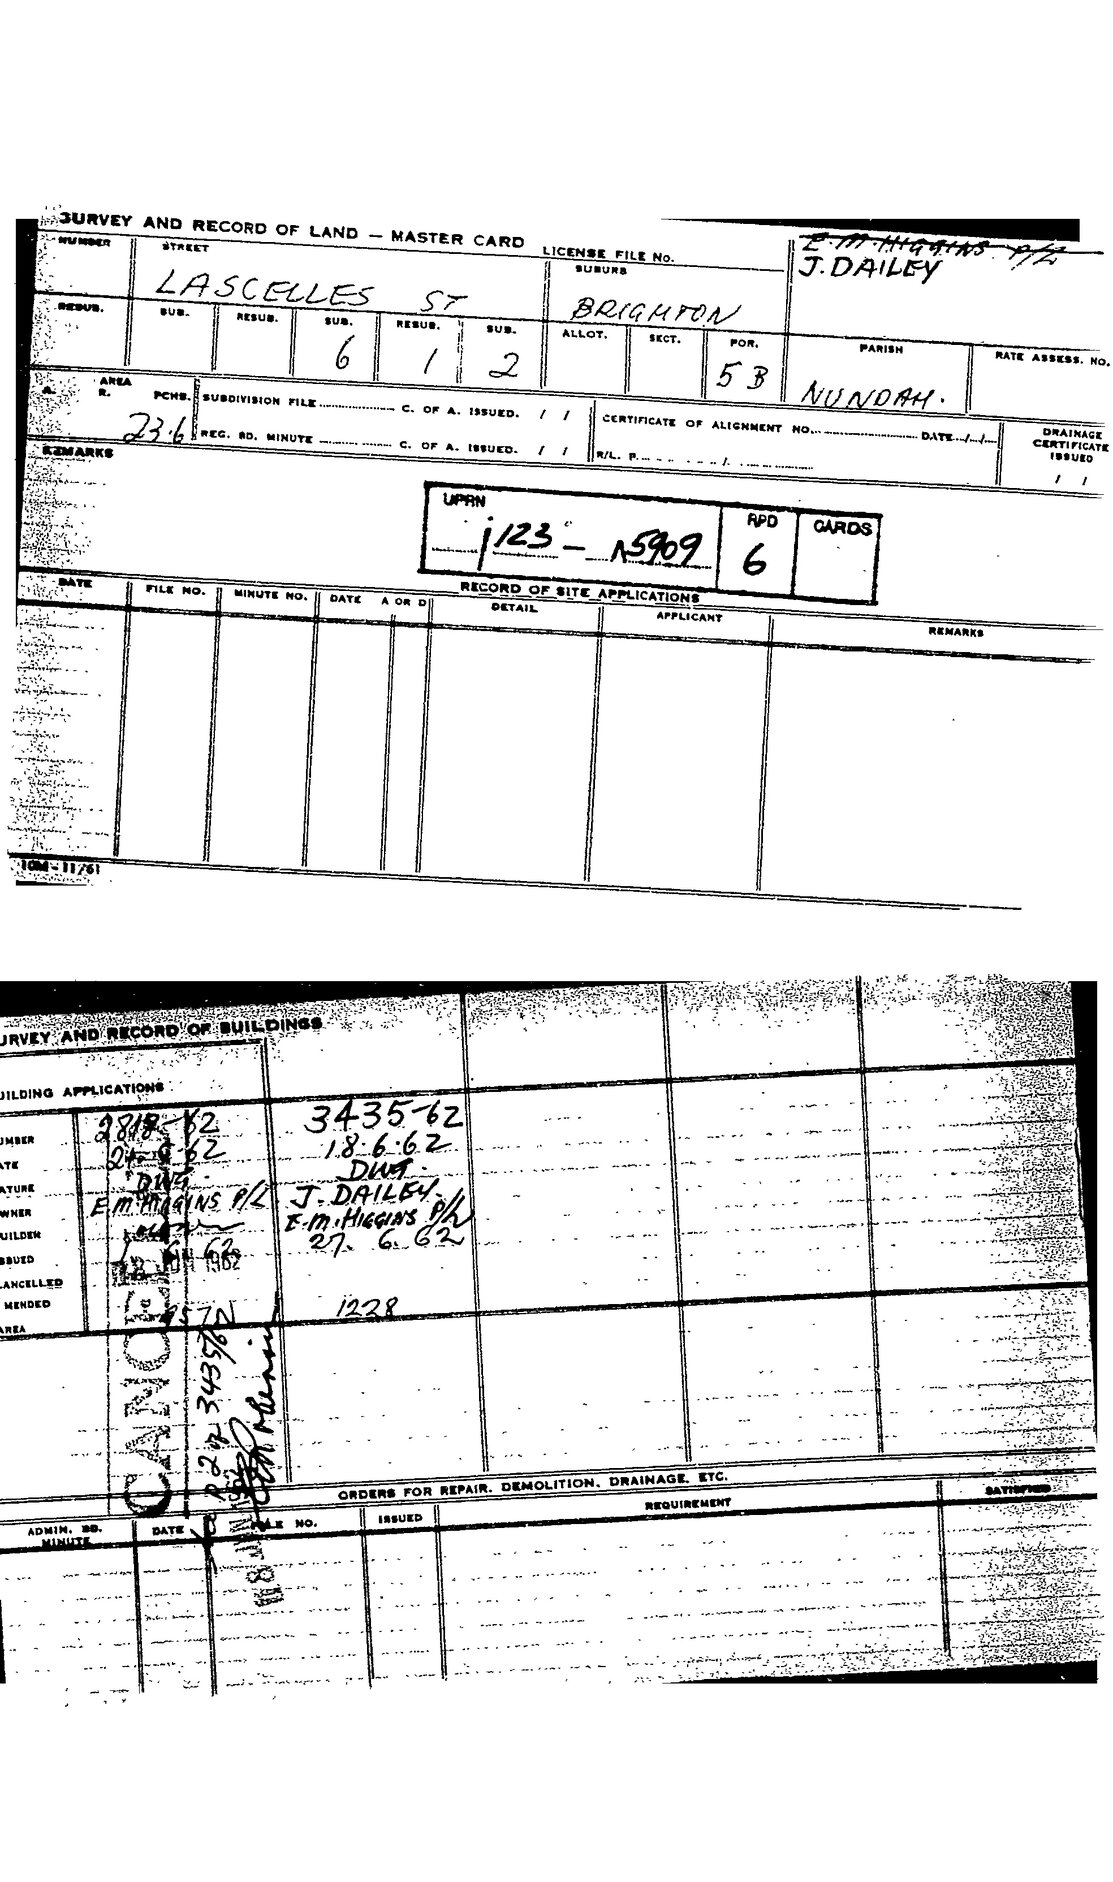 SURVEY AND RECORD OF LAND — MASTER CARD
LICENSE FILE No.
E.M. HIGGINS P/L
J. DAILEY
NUMBER STREET SUBURB
LASCELLES ST BRIGHTON
RESUB. SUB. RESUB. SUB. RESUB. SUB. ALLOT. SECT. POR. PARISH RATE ASSESS. NO.
6 1 2 5 B NUNDAH.
A. AREA R. PCHS. SUBDIVISION FILE C. OF A. ISSUED. / / CERTIFICATE OF ALIGNMENT NO. DATE / / DRAINAGE CERTIFICATE ISSUED
23.6 REG. BD. MINUTE C. OF A. ISSUED. / / R/L. P. / / /
REMARKS
UPRN RPD CARDS
123 – 5909 6
RECORD OF SITE APPLICATIONS
DATE FILE NO. MINUTE NO. DATE A OR D DETAIL APPLICANT REMARKS
10M-11/61
URVEY AND RECORD OF BUILDINGS
UILDING APPLICATIONS
UMBER 3435-62
ATE 18.6.62
ATURE DWG. DWG.
WNER E.M. HIGGINS P/L J. DAILEY.
UILDER E.M. HIGGINS P/L
SSUED 27. 6. 62
ANCELLED JUN 1962
MENDED
AREA 1228
CANCELLED
3435/62
ORDERS FOR REPAIR, DEMOLITION, DRAINAGE, ETC.
ADMIN. BD. MINUTE DATE FILE NO. ISSUED REQUIREMENT SATISFIED